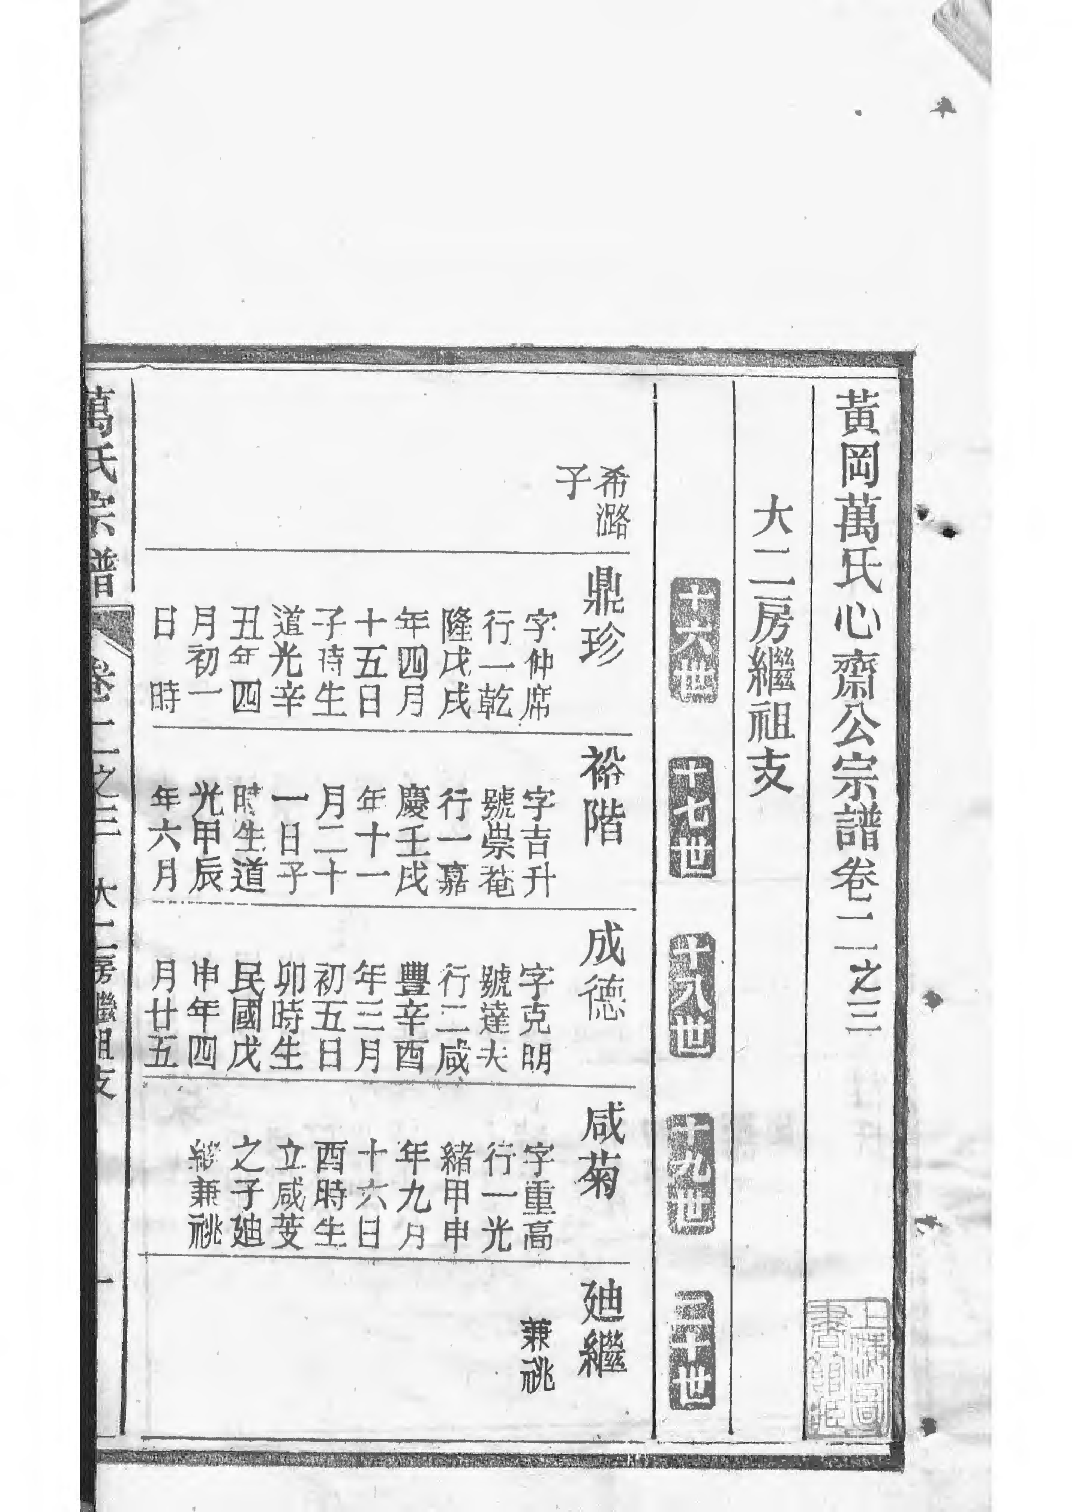 黃岡萬氏心齋公宗譜卷二之三
大二房繼祖支
十六世
十七世
十八世
十九世
二十世
希潞
子
鼎珍
字仲席
行一乾
隆戊戌
年四月
十五日
子時生
道光辛
丑年四
月初一
日 時
裕階
字吉升
號崇菴
行一嘉
慶壬戌
年十一
月二十
一日子
時生道
光甲辰
年六月
成德
字克明
號達夫
行二咸
豐辛酉
年三月
初五日
卯時生
民國戊
申年四
月廿五
咸菊
字重高
行一光
緒甲申
年九月
十六日
酉時生
立咸芰
之子廸
繼兼祧
廸繼
兼祧
萬氏宗譜
卷二之三 大二房繼祖支 一
上海圖
書館藏